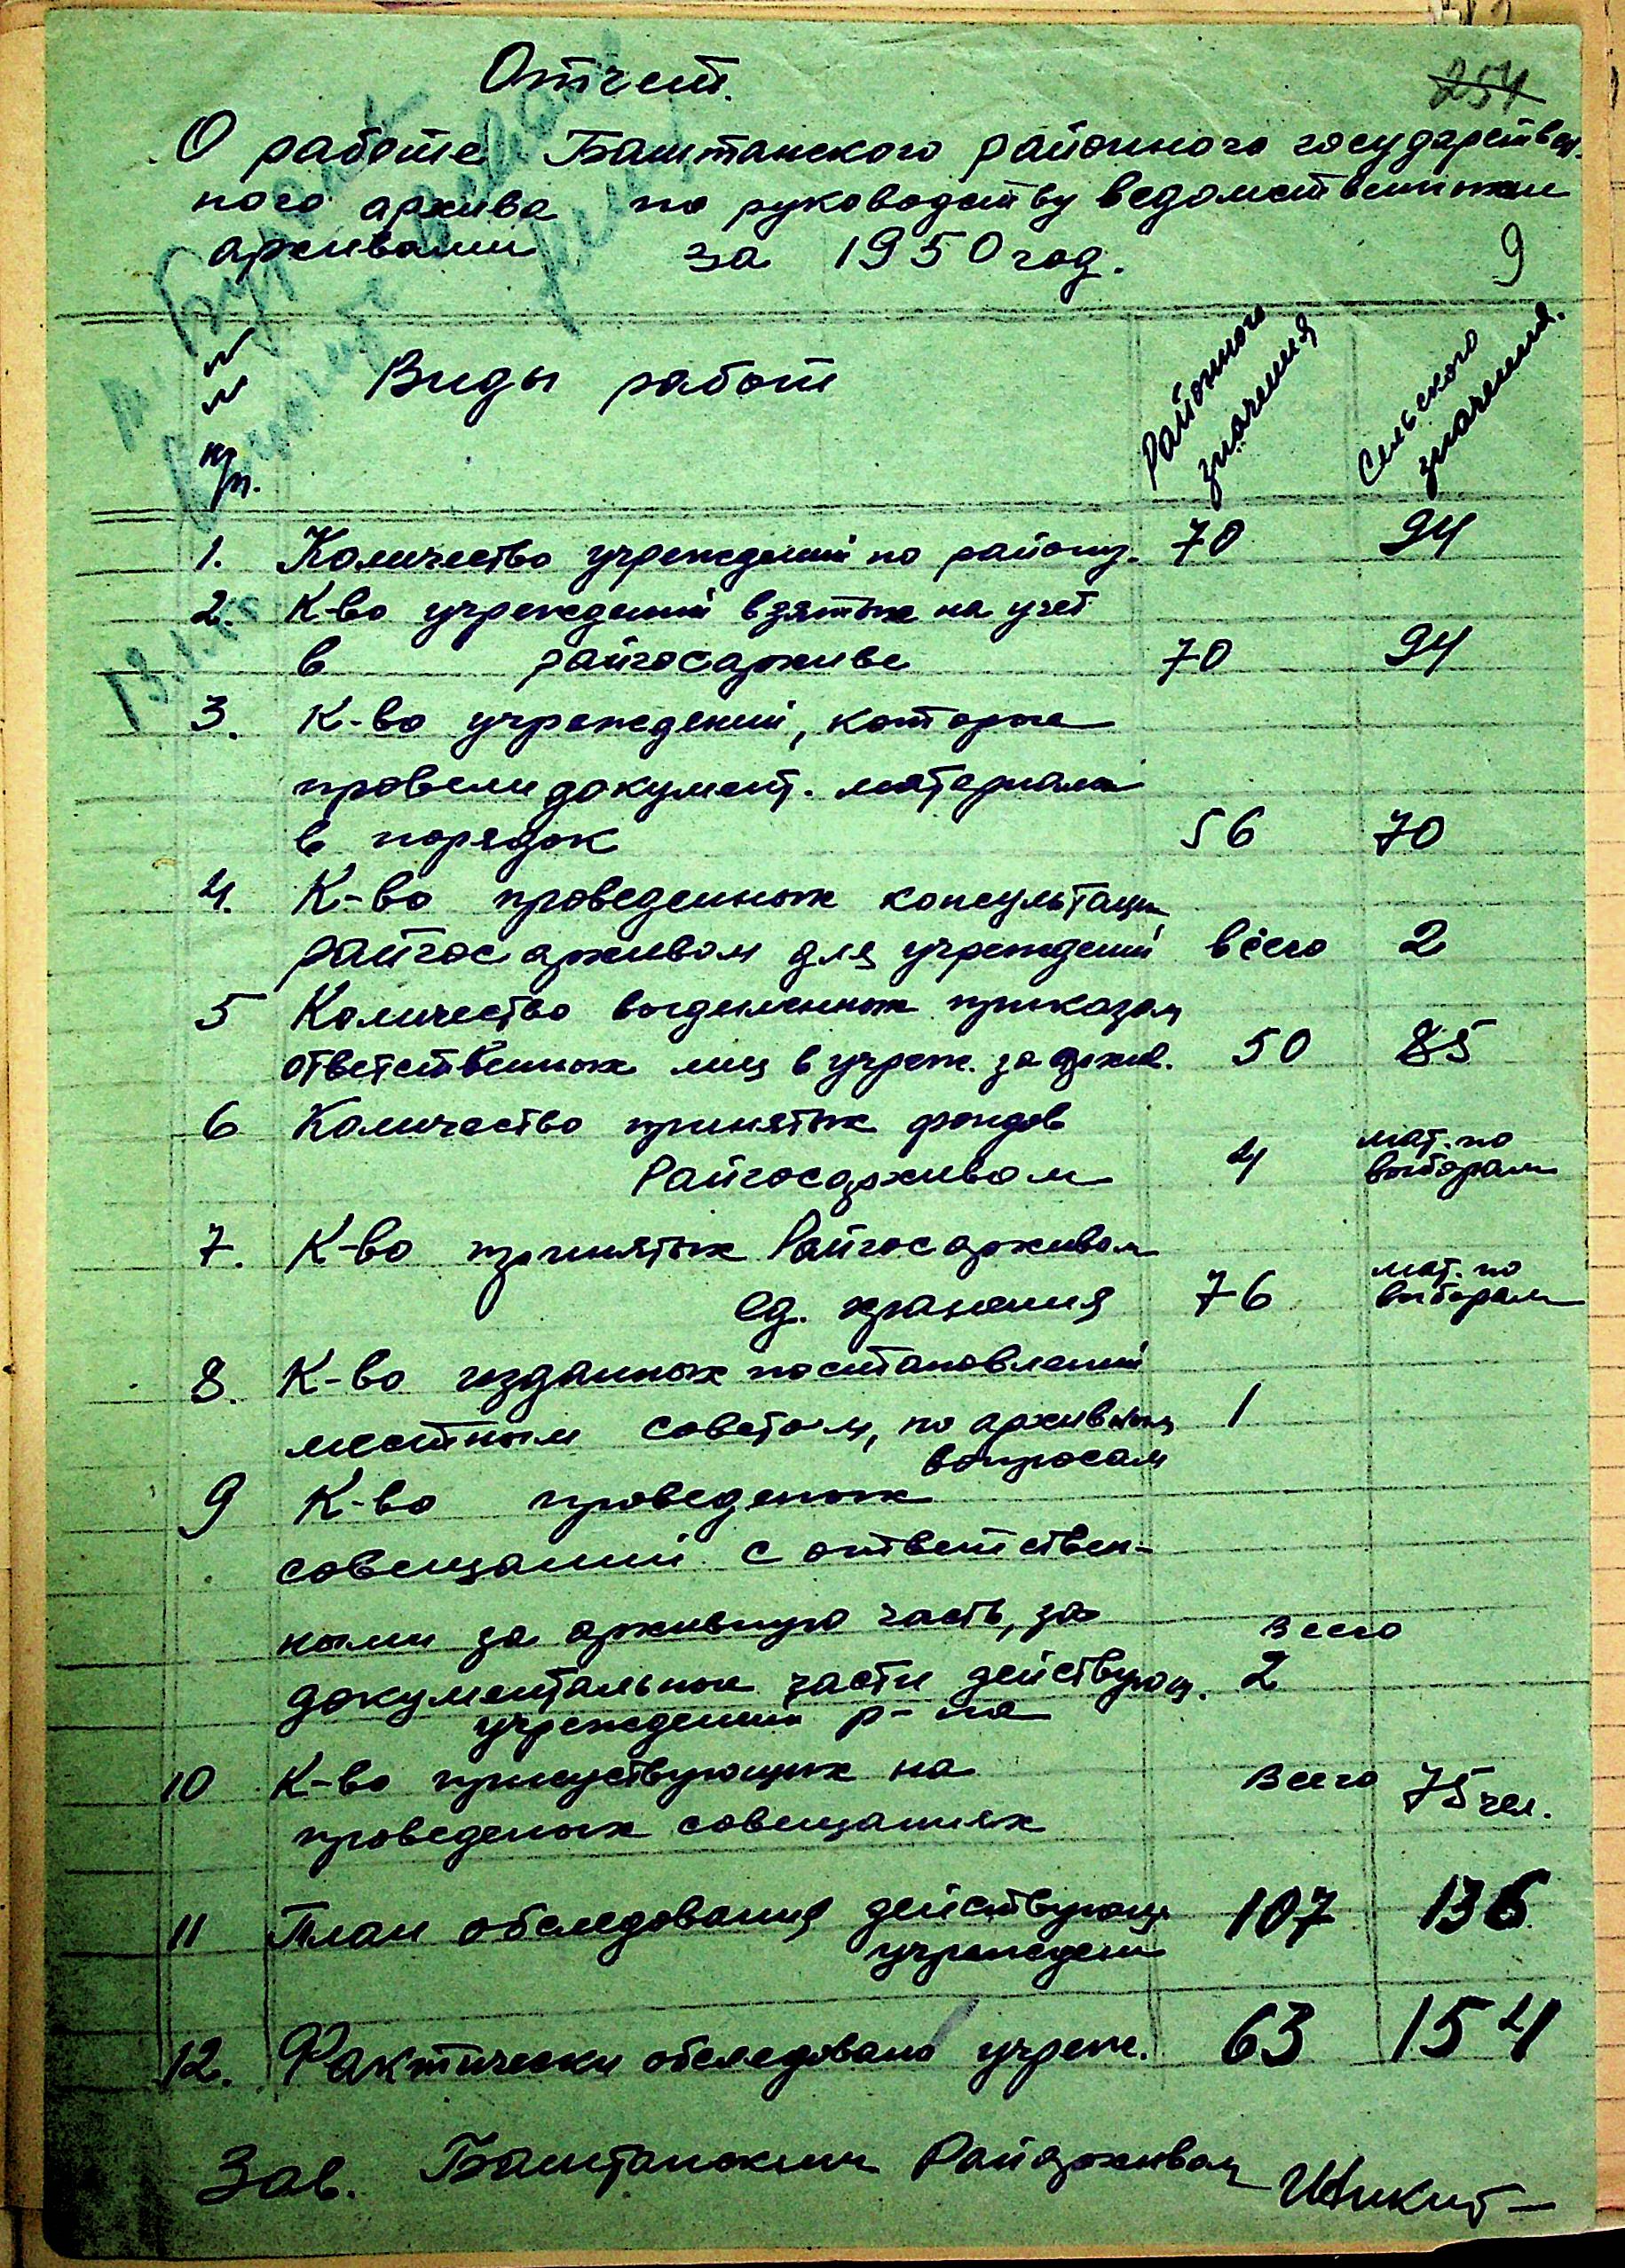 254
Отчет.
О работе Баштанского районного государствен-
ного архива по руководству ведомственными
архивами за 1950 год.
9
№№ п/п. Виды работ Районного значения Сельского значения.
1. Количество учреждений по району. 70 94
2. К-во учреждений взятых на учет
в райгосархиве 70 94
3. К-во учреждений, которые
провели документ. материалы
в порядок 56 70
4. К-во проведенных консультаций
райгосархивом для учреждений всего 2
5 Количество выделенных приказом
ответственных лиц в учреж. за архив. 50 85
6 Количество принятых фондов
Райгосархивом 4 мат. по выборам
7. К-во принятых Райгосархивом
ед. хранения 76 мат. по выборам
8. К-во изданных постановлений
местным советом, по архивным 1
вопросам
9 К-во проведеных
совещаний с ответствен-
ными за архивную часть, за Всего
документальные части действующ. 2
учреждений р-на
10 К-во присуствующих на Всего 75 чел.
проведеных совещаниях
11 План обследования действующ. 107 136
учреждений
12. Фактически обследовано учреж. 63 154
Зав. Баштанским Райархивом
13.1.